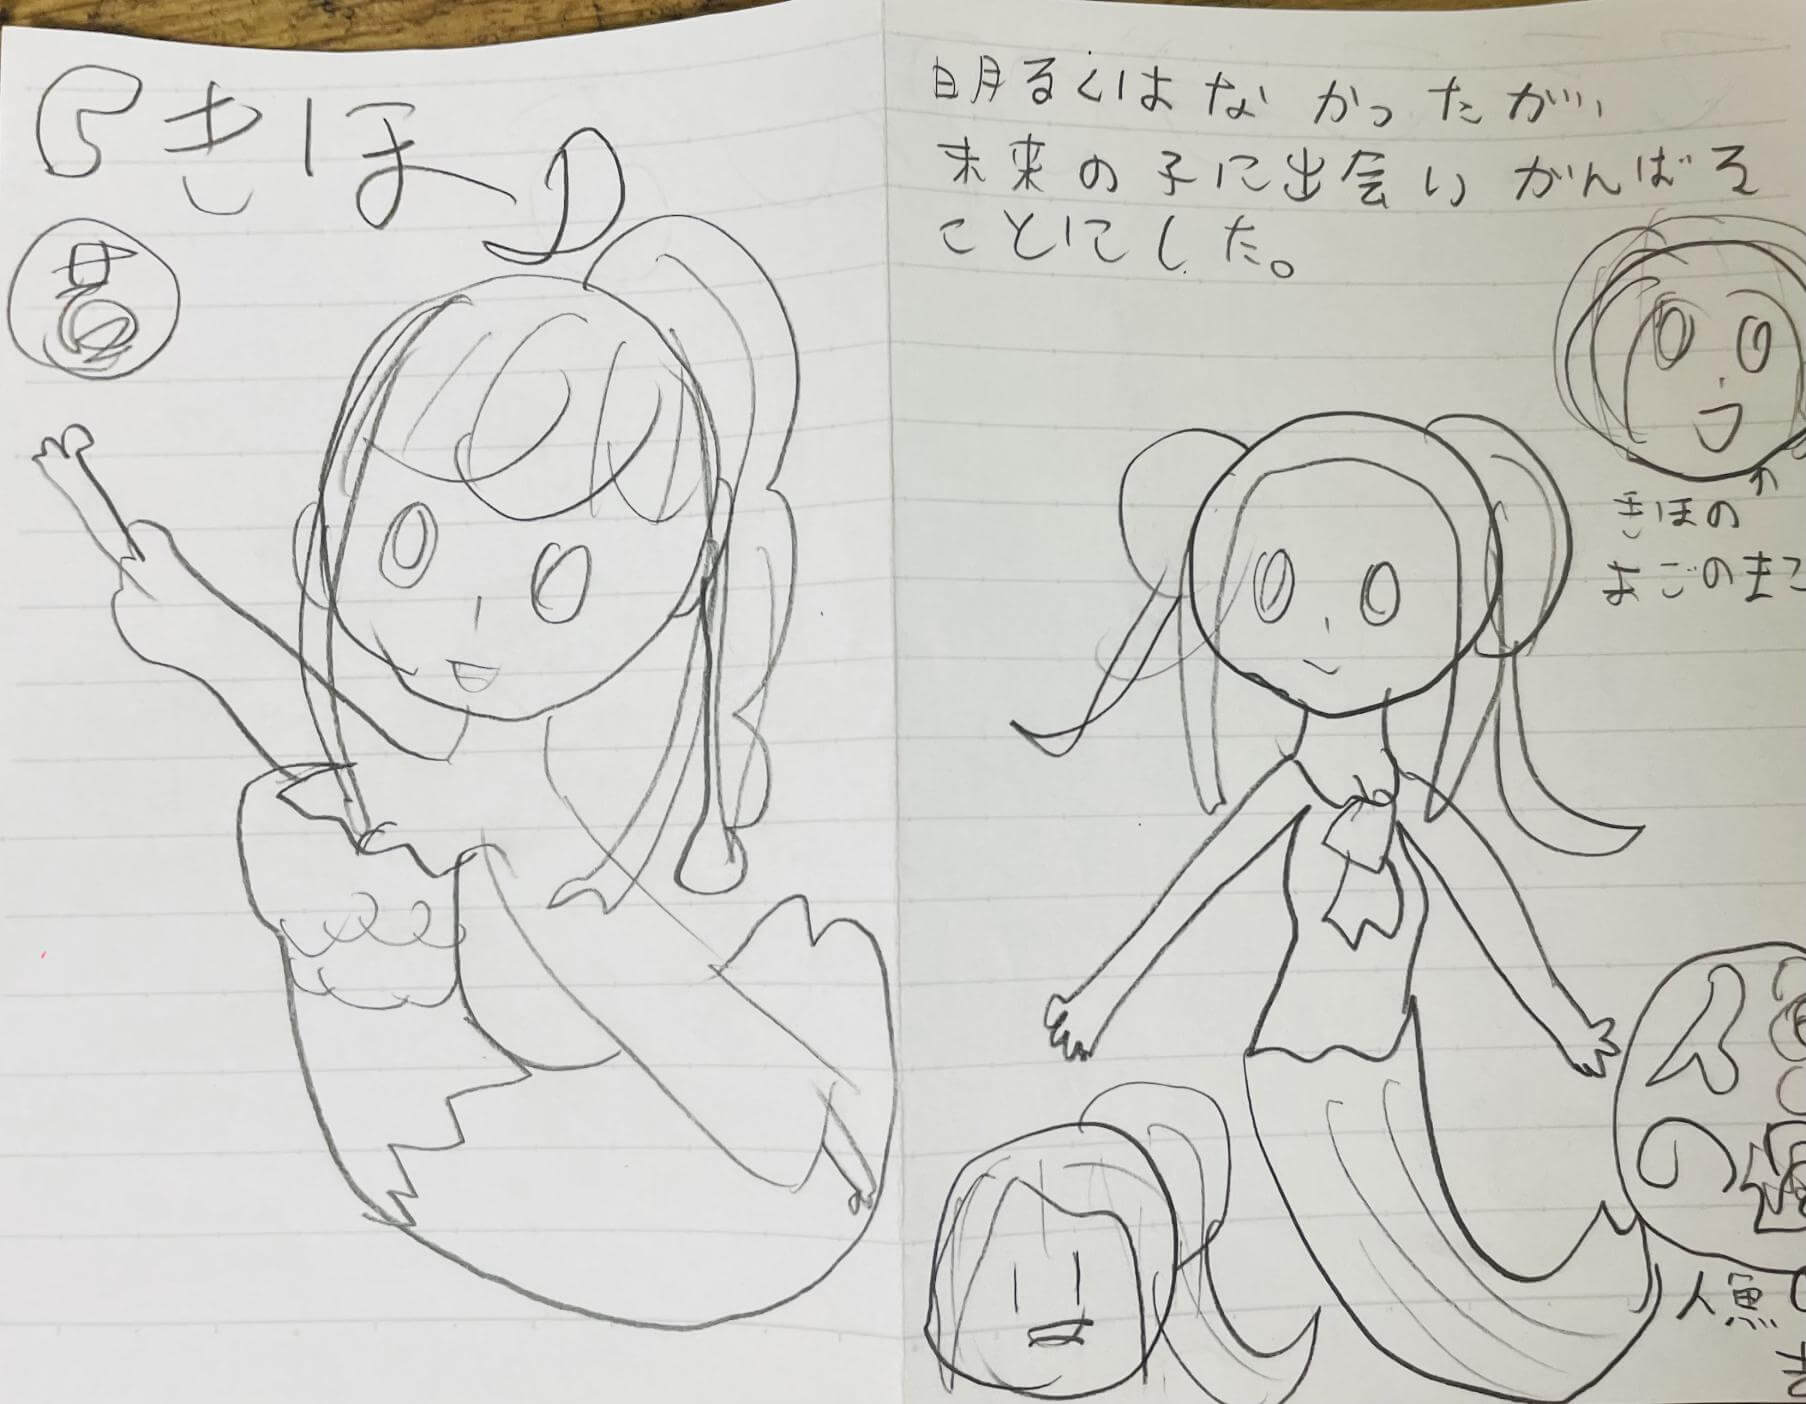 「きほ」
明るくはなかったが
未来の子に出会いがんばる
ことにした。
きほの
まごのまご
人の
人魚